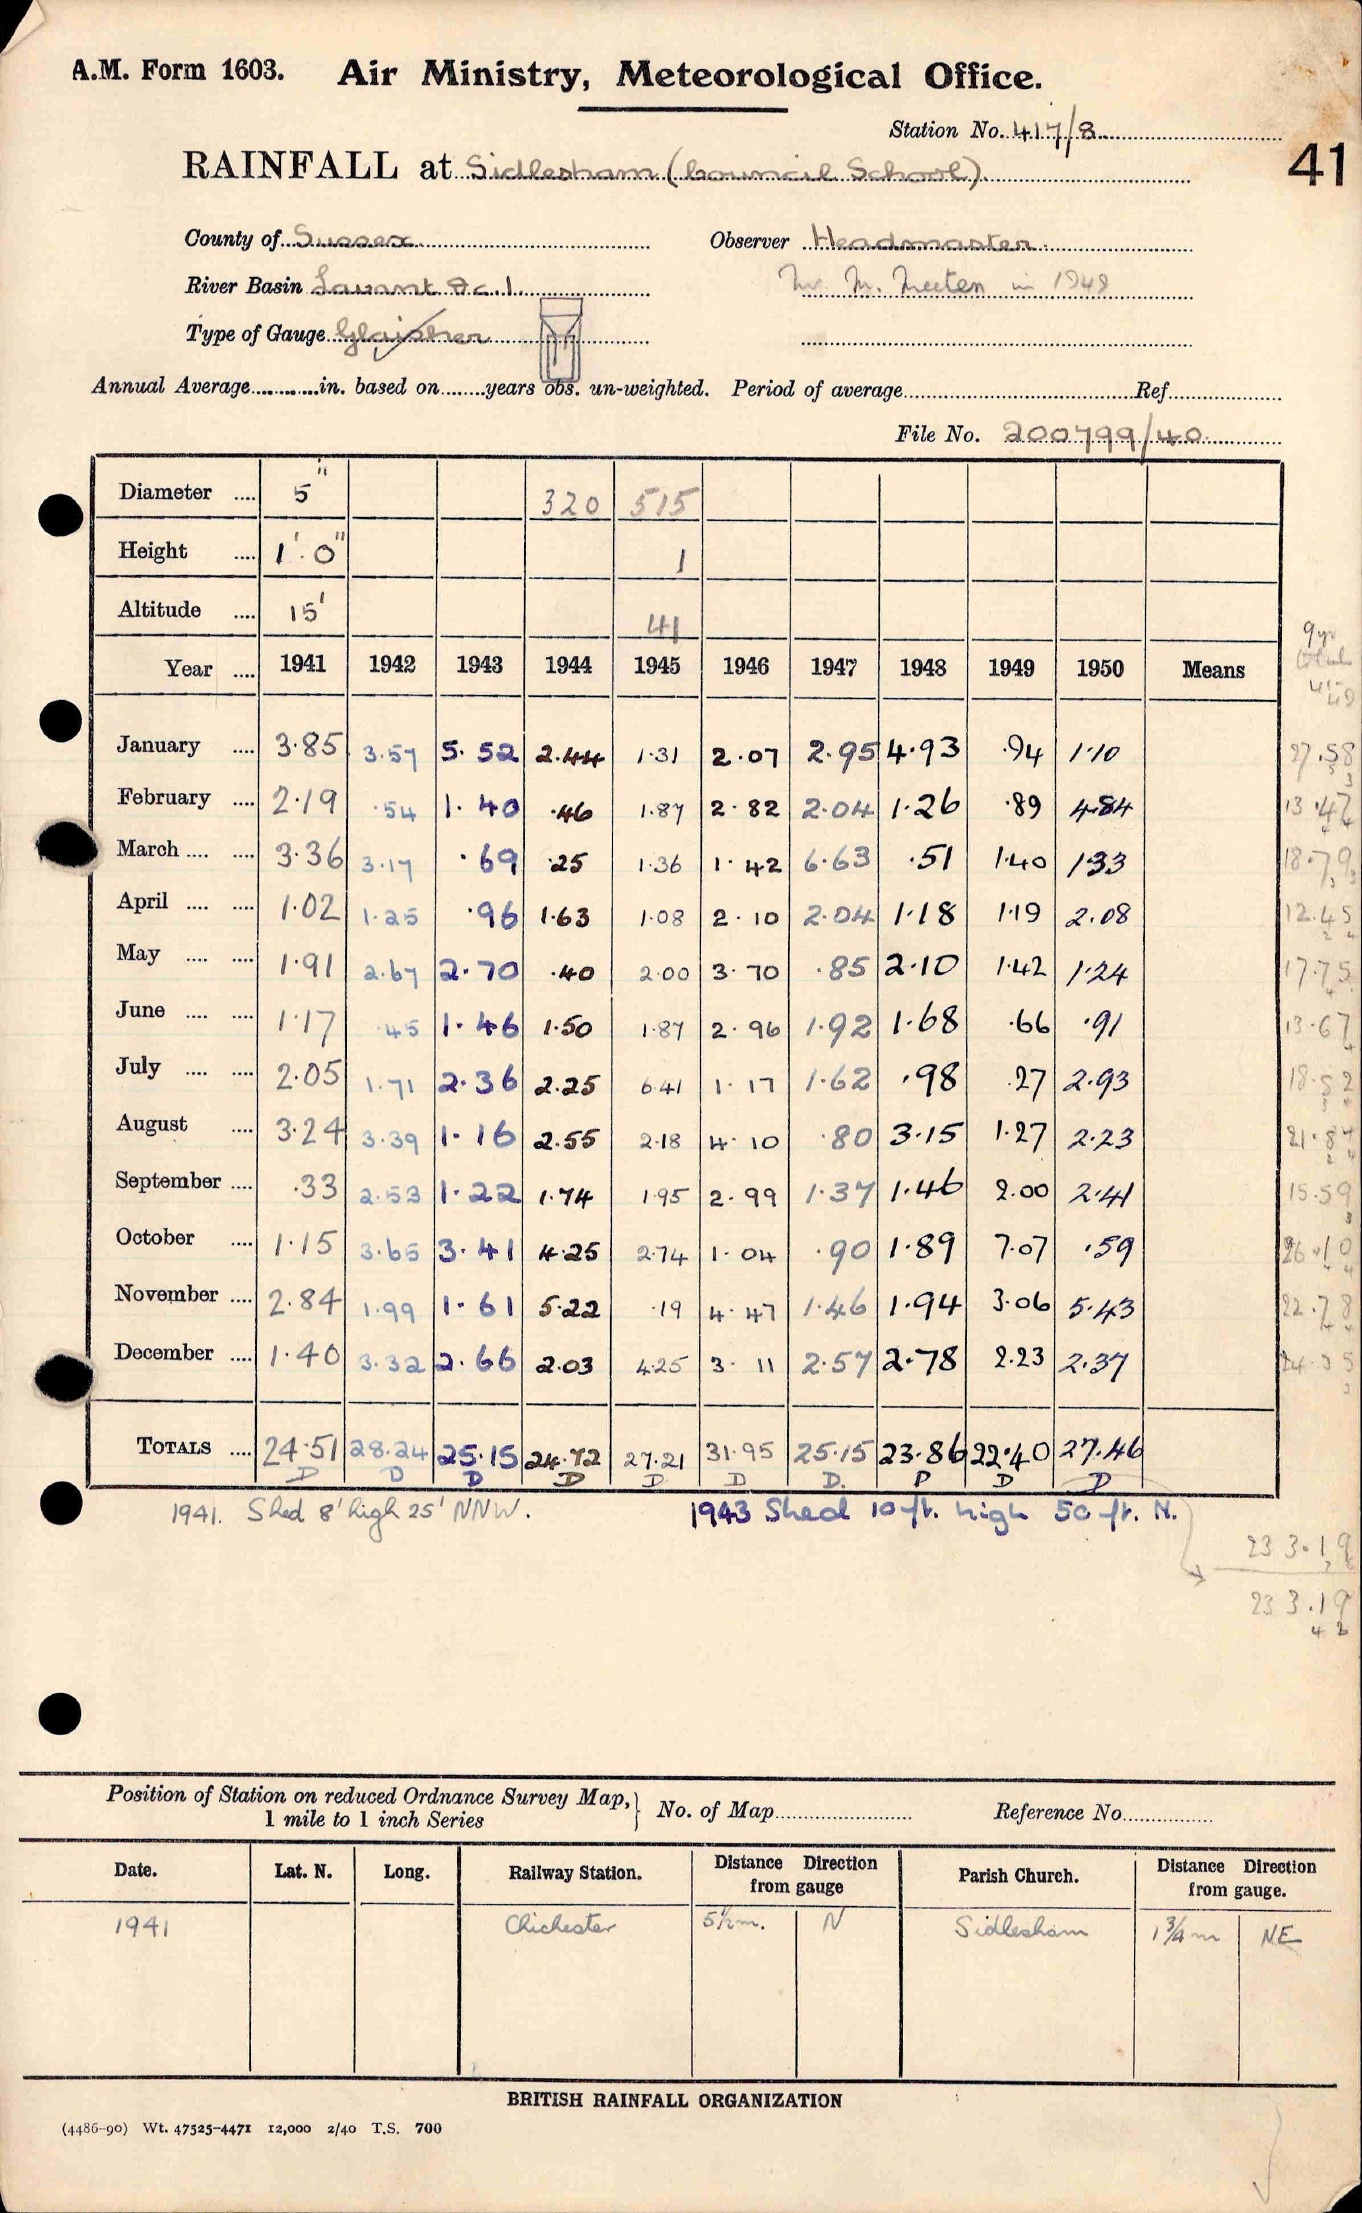 A.M. Form 1603. Air Ministry, Meteorological Office.
Station No. 417/8
41
RAINFALL at Sidlesham (Council School)
County of Sussex Observer Headmaster
River Basin Lavant &c. 1. Mr. M. Meeten in 1949
Type of Gauge Glaisher
Annual Average in. based on years obs. un-weighted. Period of average Ref
File No. 200799/40
Diameter 5" 320 515
Height 1' 0" 1
Altitude 15' 41
9 yr
Year 1941 1942 1943 1944 1945 1946 1947 1948 1949 1950 Means
41-49
January 3.85 3.57 5.52 2.44 1.31 2.07 2.95 4.93 .94 1.10 27.58
February 2.19 .54 1.40 .46 1.87 2.82 2.04 1.26 .89 4.84 13.47
March 3.36 3.17 .69 .25 1.36 1.42 6.63 .51 1.40 1.33 18.79
April 1.02 1.25 .96 1.63 1.08 2.10 2.04 1.18 1.19 2.08 12.45
May 1.91 2.67 2.70 .40 2.00 3.70 .85 2.10 1.42 1.24 17.75
June 1.17 .45 1.46 1.50 1.87 2.96 1.92 1.68 .66 .91 13.67
July 2.05 1.71 2.36 2.25 6.41 1.17 1.62 .98 .27 2.93 18.82
August 3.24 3.39 1.16 2.55 2.18 4.10 .80 3.15 1.27 2.23 21.84
September .33 2.53 1.22 1.74 1.95 2.99 1.37 1.46 2.00 2.41 15.59
October 1.15 3.65 3.41 4.25 2.74 1.04 .90 1.89 7.07 .59 26.10
November 2.84 1.99 1.61 5.22 .19 4.47 1.46 1.94 3.06 5.43 22.78
December 1.40 3.32 2.66 2.03 4.25 3.11 2.57 2.78 2.23 2.37 24.35
TOTALS 24.51 28.24 25.15 24.72 27.21 31.95 25.15 23.86 22.40 27.46
D D D D D D D. P D D
1941. Shed 8' high 25' NNW. 1943 Shed 10 ft. high 50 ft. N.
233.19
233.19
Position of Station on reduced Ordnance Survey Map,
1 mile to 1 inch Series
No. of Map Reference No
Date. Lat. N. Long. Railway Station. Distance Direction from gauge Parish Church. Distance Direction from gauge.
1941 Chichester 5½m. N Sidlesham 1¾m NE
BRITISH RAINFALL ORGANIZATION
(4486-90) Wt. 47525-4471 12,000 2/40 T.S. 700